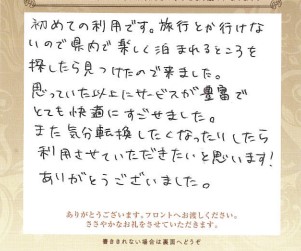 初めての利用です。旅行とか行けな
いので県内で楽しく泊まれるところを
探したら見つけたので来ました。
思っていた以上にサービスが豊富で
とても快適にすごせました。
また気分転換したくなったりしたら
利用させていただきたいと思います!
ありがとうございました。
ありがとうございます。フロントへお渡しください。
ささやかなお礼をさせていただきます。
書ききれない場合は裏面へどうぞ